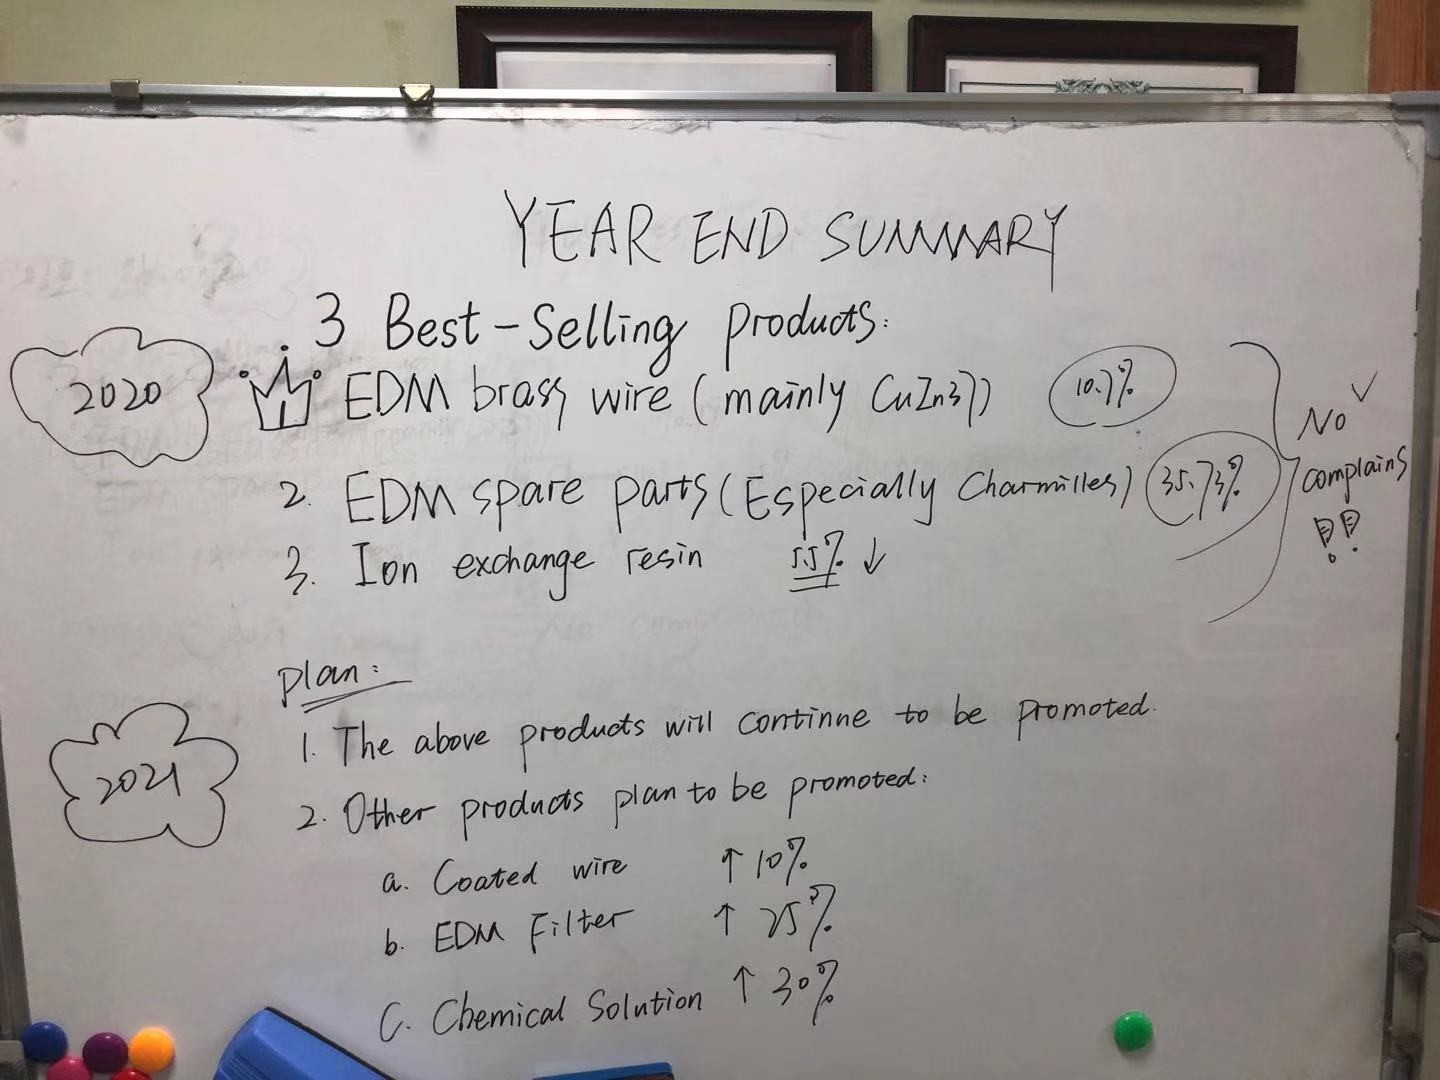 YEAR END SUMMARY
3 Best-Selling products:
2020
EDM brass wire (mainly CuZn37)
10.7%
No
complains
!!
2. EDM spare parts (Especially Charmilles) 35.73%
3. Ion exchange resin 5.5% ↓
plan:
1. The above products will continne to be promoted.
2021
2. Other products plan to be promoted:
a. Coated wire ↑ 10%
b. EDM Filter ↑ 25%
C. Chemical Solution ↑ 30%